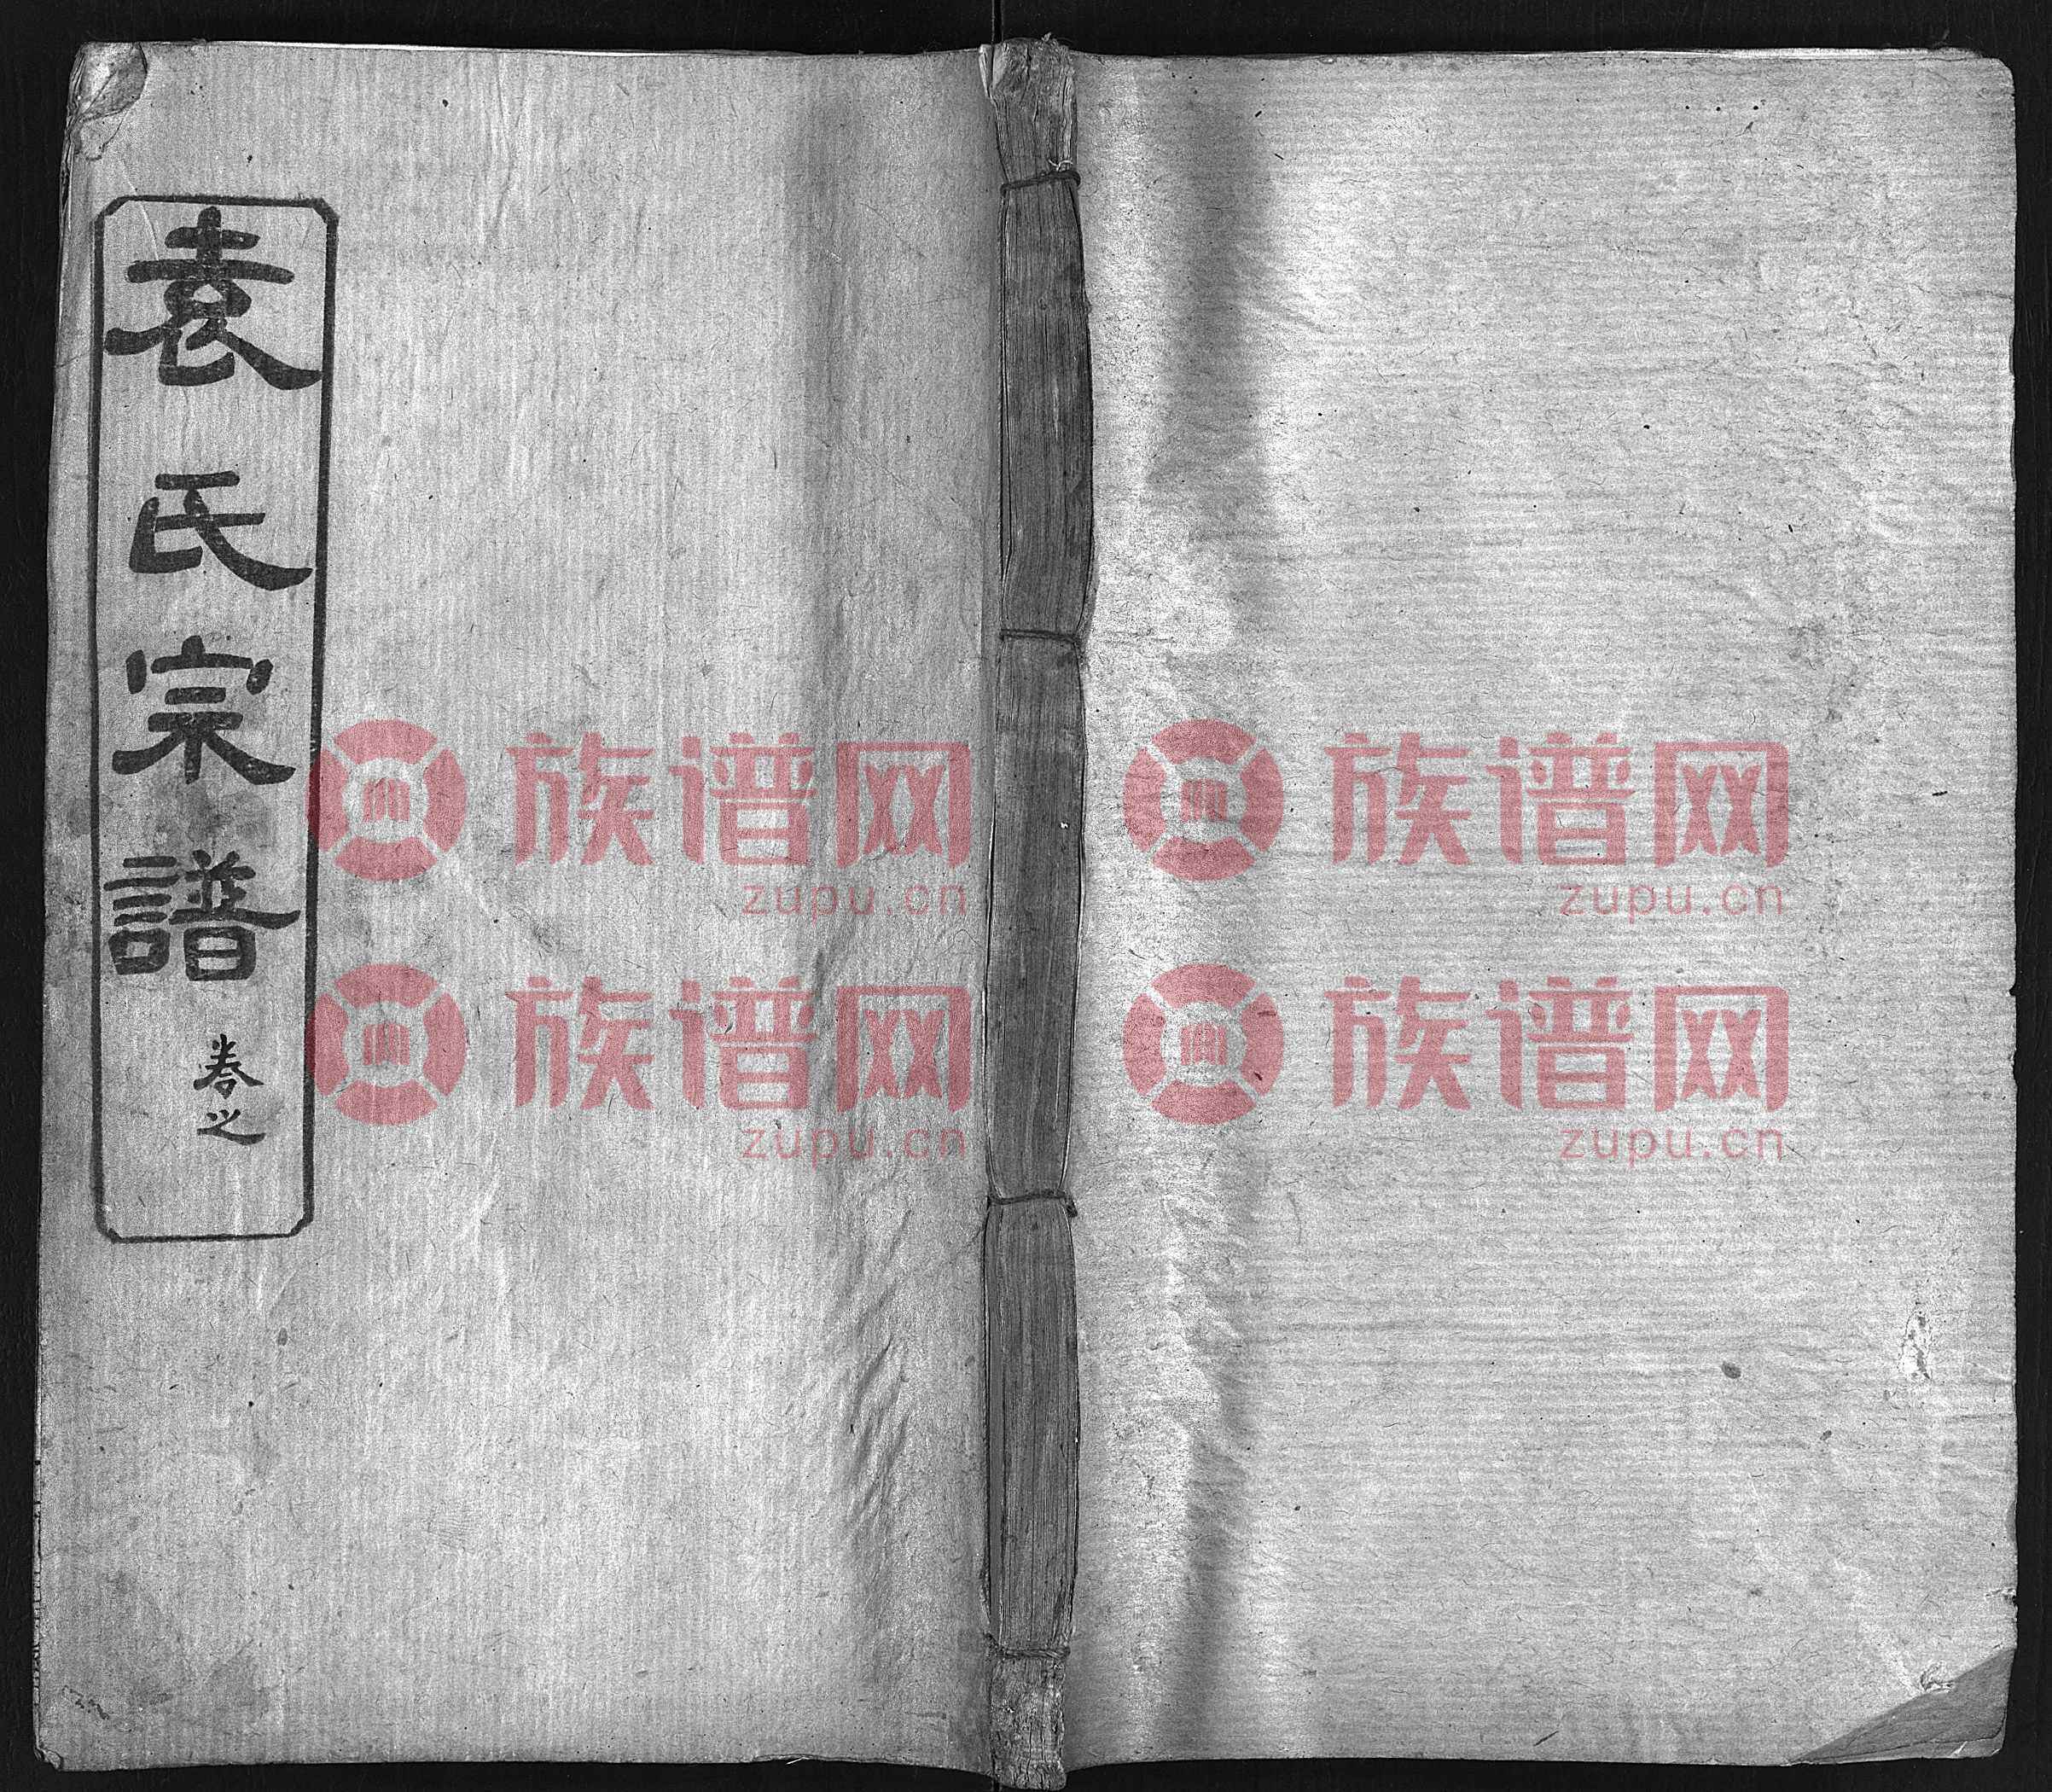 袁氏宗譜
卷之
族谱网
zupu.cn
族谱网
zupu.cn
族谱网
zupu.cn
族谱网
zupu.cn